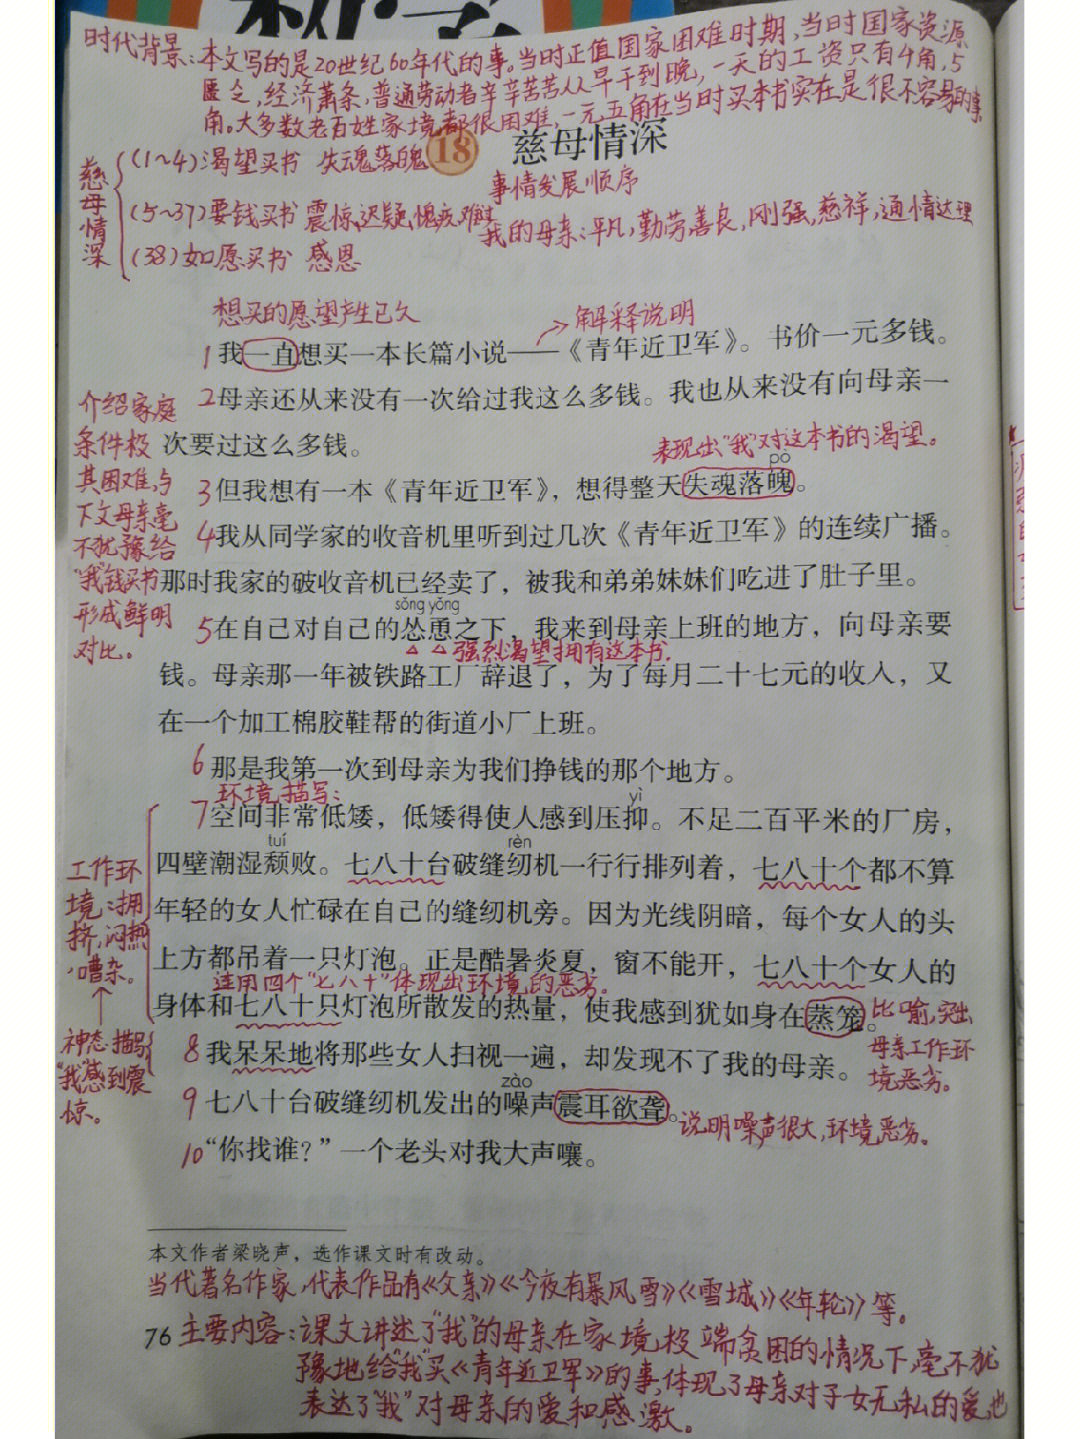 时代背景:本文写的是20世纪60年代的事。当时正值国家困难时期,当时国家资源
匮乏,经济萧条,普通劳动者辛辛苦苦从早干到晚,一天的工资只有4角,5
角。大多数老百姓家境都很困难,一元五角在当时买本书实在是很不容易的事
18 慈母情深
慈母情深
(1~4)渴望买书 失魂落魄
事情发展顺序
(5~37)要钱买书 震惊,迟疑,愧疚,难过
我的母亲:平凡,勤劳善良,刚强,慈祥,通情达理
(38)如愿买书 感恩
想买的愿望产生已久
解释说明
1我一直想买一本长篇小说——《青年近卫军》。书价一元多钱。
2母亲还从来没有一次给过我这么多钱。我也从来没有向母亲一
次要过这么多钱。
介绍家庭
条件极
其困难,与
下文母亲毫
不犹豫给
“我”钱买书
形成鲜明
对比。
表现出“我”对这本书的渴望。
pò
3但我想有一本《青年近卫军》,想得整天失魂落魄。
4我从同学家的收音机里听到过几次《青年近卫军》的连续广播。
那时我家的破收音机已经卖了,被我和弟弟妹妹们吃进了肚子里。
sǒng yǒng
5在自己对自己的怂恿之下,我来到母亲上班的地方,向母亲要
强烈渴望拥有这本书.
钱。母亲那一年被铁路工厂辞退了,为了每月二十七元的收入,又
在一个加工棉胶鞋帮的街道小厂上班。
6那是我第一次到母亲为我们挣钱的那个地方。
环境描写:
yì
7空间非常低矮,低矮得使人感到压抑。不足二百平米的厂房,
tuí rèn
四壁潮湿颓败。七八十台破缝纫机一行行排列着,七八十个都不算
年轻的女人忙碌在自己的缝纫机旁。因为光线阴暗,每个女人的头
上方都吊着一只灯泡。正是酷暑炎夏,窗不能开,七八十个女人的
连用四个“七八十”体现出环境的恶劣。
身体和七八十只灯泡所散发的热量,使我感到犹如身在蒸笼。
工作环
境:拥
挤,闷热
,嘈杂。
神态描写
“我”感到震
惊。
比喻,突出
母亲工作环
境恶劣。
8我呆呆地将那些女人扫视一遍,却发现不了我的母亲。
zào
9七八十台破缝纫机发出的噪声震耳欲聋。
说明噪声很大,环境恶劣。
10“你找谁?”一个老头对我大声嚷。
本文作者梁晓声,选作课文时有改动。
当代著名作家,代表作品有《父亲》《今夜有暴风雪》《雪城》《年轮》等。
76 主要内容:课文讲述了“我”的母亲在家境极端贫困的情况下,毫不犹
豫地给“我”买《青年近卫军》的事,体现了母亲对子女无私的爱,也
表达了“我”对母亲的爱和感激。